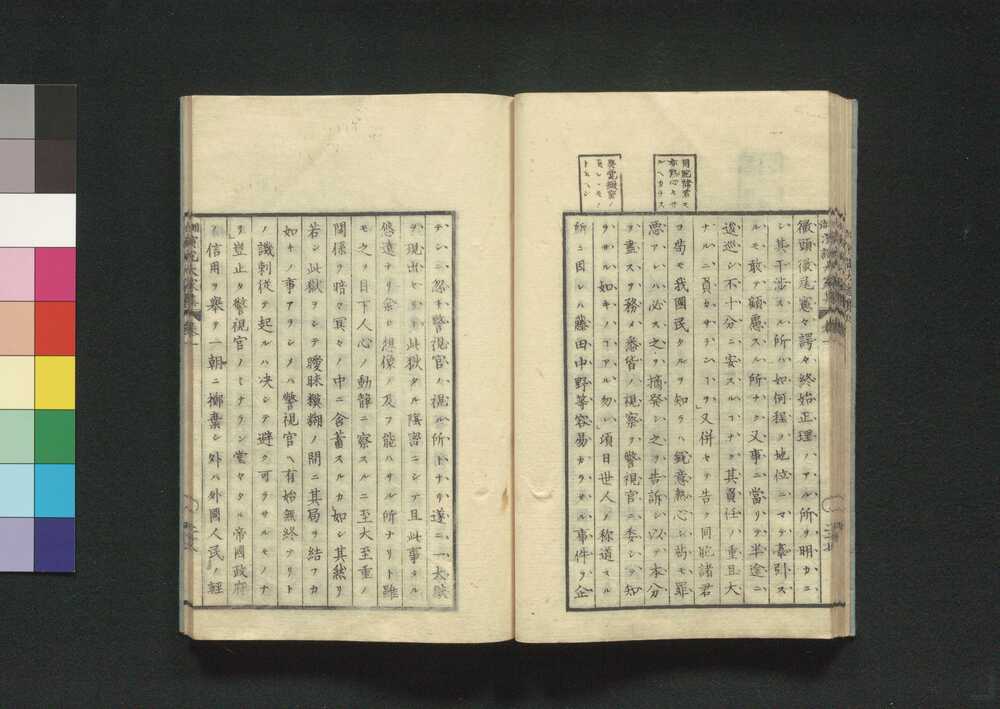 同胞諸君モ
亦熱心セサ
ルヘカラス
徹頭徹尾憲々諤々終始正理ノアル所ヲ明カニ
シ其干渉スル所ハ如何程ノ地位ニマテ牽引ス
ルモ敢テ顧慮スル所ナク又事ニ當リテ半途ニ
逡巡シ不十分ニ安スルコナク其負任ノ重且大
ナルニ負カサランコヲ」又併セテ告ク同胞諸君
ヨ苟モ我國民タルヲ知ラハ鋭意熱心シ苟モ罪
悪アレハ必ス之ヲ摘發シ之ヲ告訴シ以テ本分
ヲ盡スヲ務メ悉皆ノ視察ヲ警視官ニ委シテ知
ラサル如キコアル勿レ」項日世人ノ称道スル
所ニ因レハ藤田中野等容易カラサル事件ヲ企
テシニ忽チ警視官ノ視ル所トナリ遂ニ一大獄
ヲ現出セリト此獄タル陰密ニシテ且此事タル
悠遠ナリ余ヒ想像ノ及フ能ハサル所ナリト雖
モ之ヲ目下人心ノ動静ニ察スルニ至大至重ノ
関係ヲ暗々冥々ノ中ニ含蓄スルカ如シ其然リ
若シ此獄ヲシテ曖昧糢糊ノ間ニ其局ヲ結フカ
如キノ事アラシメハ警視官ヘ有始無終アリト
ノ譏刺從テ起ルハ决シテ避ク可ラサルモノナ
リ豈止タ警視官ノミナランシ堂々タル帝國政府
ノ信用ヲ舉テ一朝ニ擲棄シ外ハ外國人民ノ軽